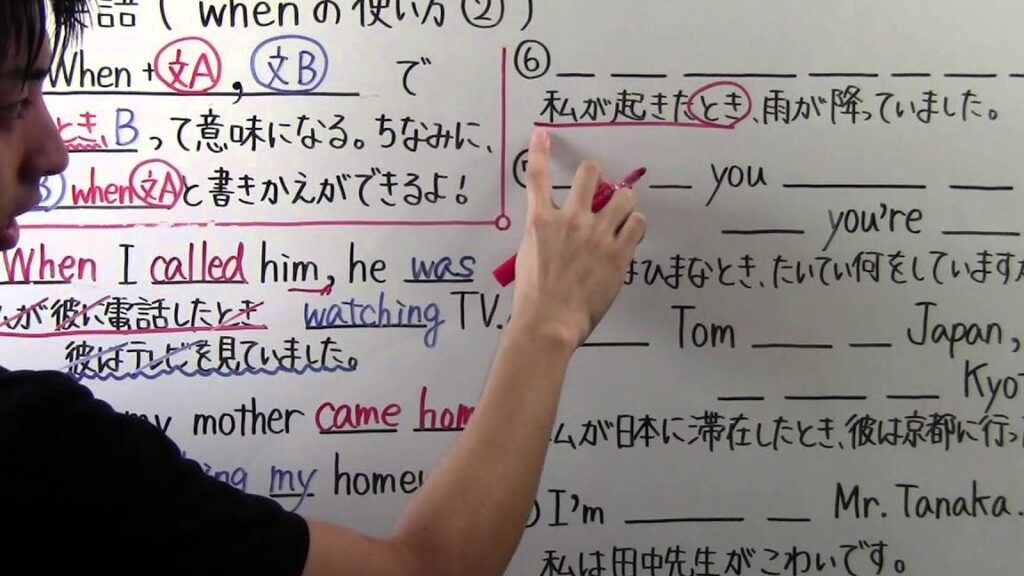 語 ( whenの使い方② )
When + 文A , 文B で
とき、B って意味になる。ちなみに、
B when 文A と書きかえができるよ!
When I called him, he was
が彼に電話したとき watching TV.
彼はテレビを見ていました。
my mother came hom
ing my homew
⑥
私が起きたとき、雨が降っていました。
you
you're
ひまなとき、たいてい何をしています
Tom Japan,
Kyo
が日本に滞在したとき、彼は京都に行っ
I'm Mr. Tanaka.
私は田中先生がこわいです。